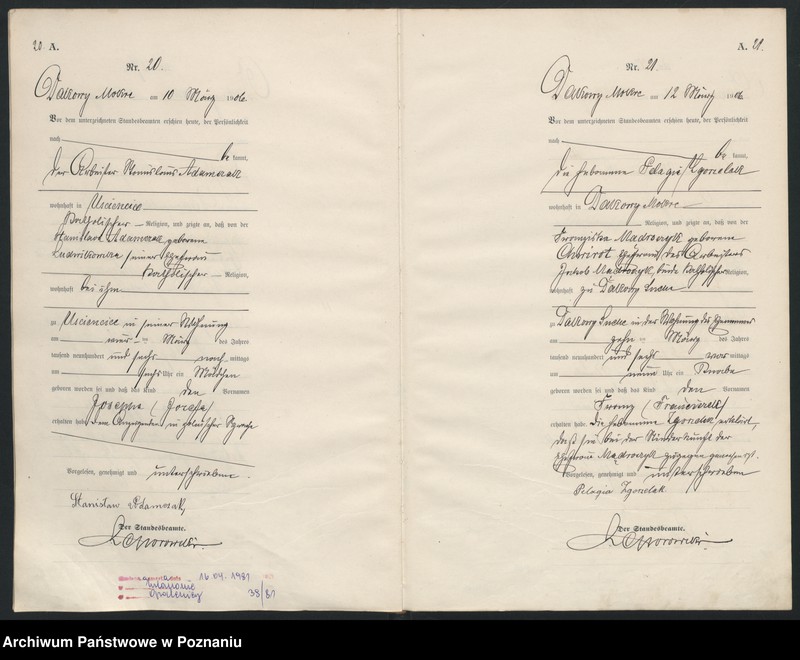 20. A.
Nr. 20.
Dakowy Mokre am 10 März 1906.
Vor dem unterzeichneten Standesbeamten erschien heute, der Persönlichkeit
nach
be kannt,
der Arbeiter Stanislaus Adamczak
wohnhaft in Usciencice
katholischer Religion, und zeigte an, daß von der
Stanislawa Adamczak geborene
seiner Ehefrau
katholischer Religion,
wohnhaft bei ihm
zu Usciencice in seiner Wohnung
am März des Jahres
tausend neunhundert und sechs nach mittags
um sechs Uhr ein Mädchen
geboren worden sei und daß das Kind den Vornamen
Josepha (Jozefa)
erhalten habe. Dem Anzeigenden in polnischer Sprache
Vorgelesen, genehmigt und unterschrieben.
Stanisław Adamczak
Der Standesbeamte.
16.04.1981
38/81
A. 21.
Nr. 21.
Dakowy Mokre am 12 März 1906
Vor dem unterzeichneten Standesbeamten erschien heute, der Persönlichkeit
nach
be kannt,
die Hebamme Pelagia Zgonelak
wohnhaft in Dakowy Mokre
Religion, und zeigte an, daß von der
Franziska Madrowzyk geborene
Ehefrau des Arbeiters
Jakob beide katholischer Religion,
wohnhaft zu Dakowy Suche
zu Dakowy Suche in der Wohnung des
am zehn März des Jahres
tausend neunhundert und sechs vor mittags
um neun Uhr ein Knabe
geboren worden sei und daß das Kind den Vornamen
Franz (Franciszek)
erhalten habe. Die Hebamme Zgonelak erklärt,
daß sie bei der Niederkunft der
Ehefrau zugegen gewesen ist.
Vorgelesen, genehmigt und unterschrieben
Pelagia Zgonelak
Der Standesbeamte.
Archiwum Państwowe w Poznaniu